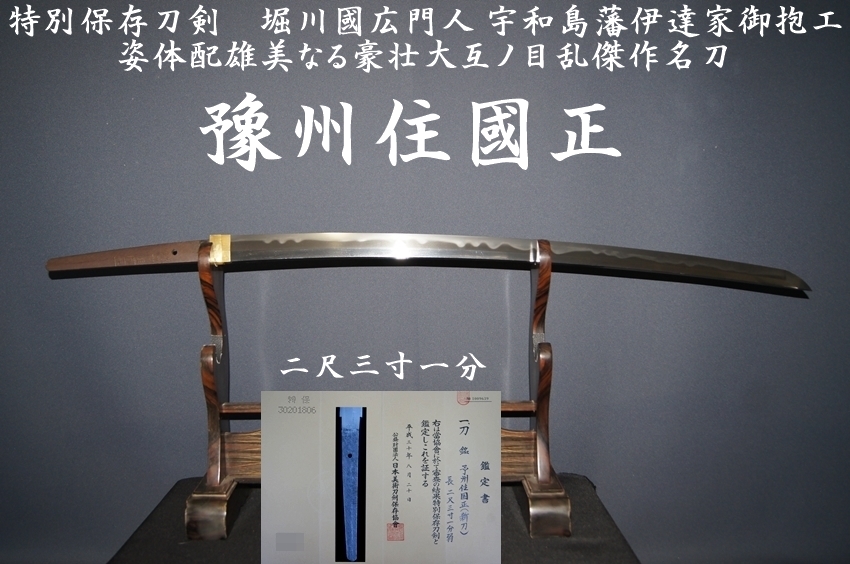 特別保存刀剣　堀川國広門人 宇和島藩伊達家御抱工
姿体配雄美なる豪壮大互ノ目乱傑作名刀
豫州住國正
二尺三寸一分
J0201806
鑑定書
一、刀 銘 予州住国正(新刀)
長 二尺三寸一分弱
右は当協會に於て審査の結果特別保存刀剣と
鑑定しこれを証する
平成三十年八月二十日
公益財団法人 日本美術刀剣保存協會